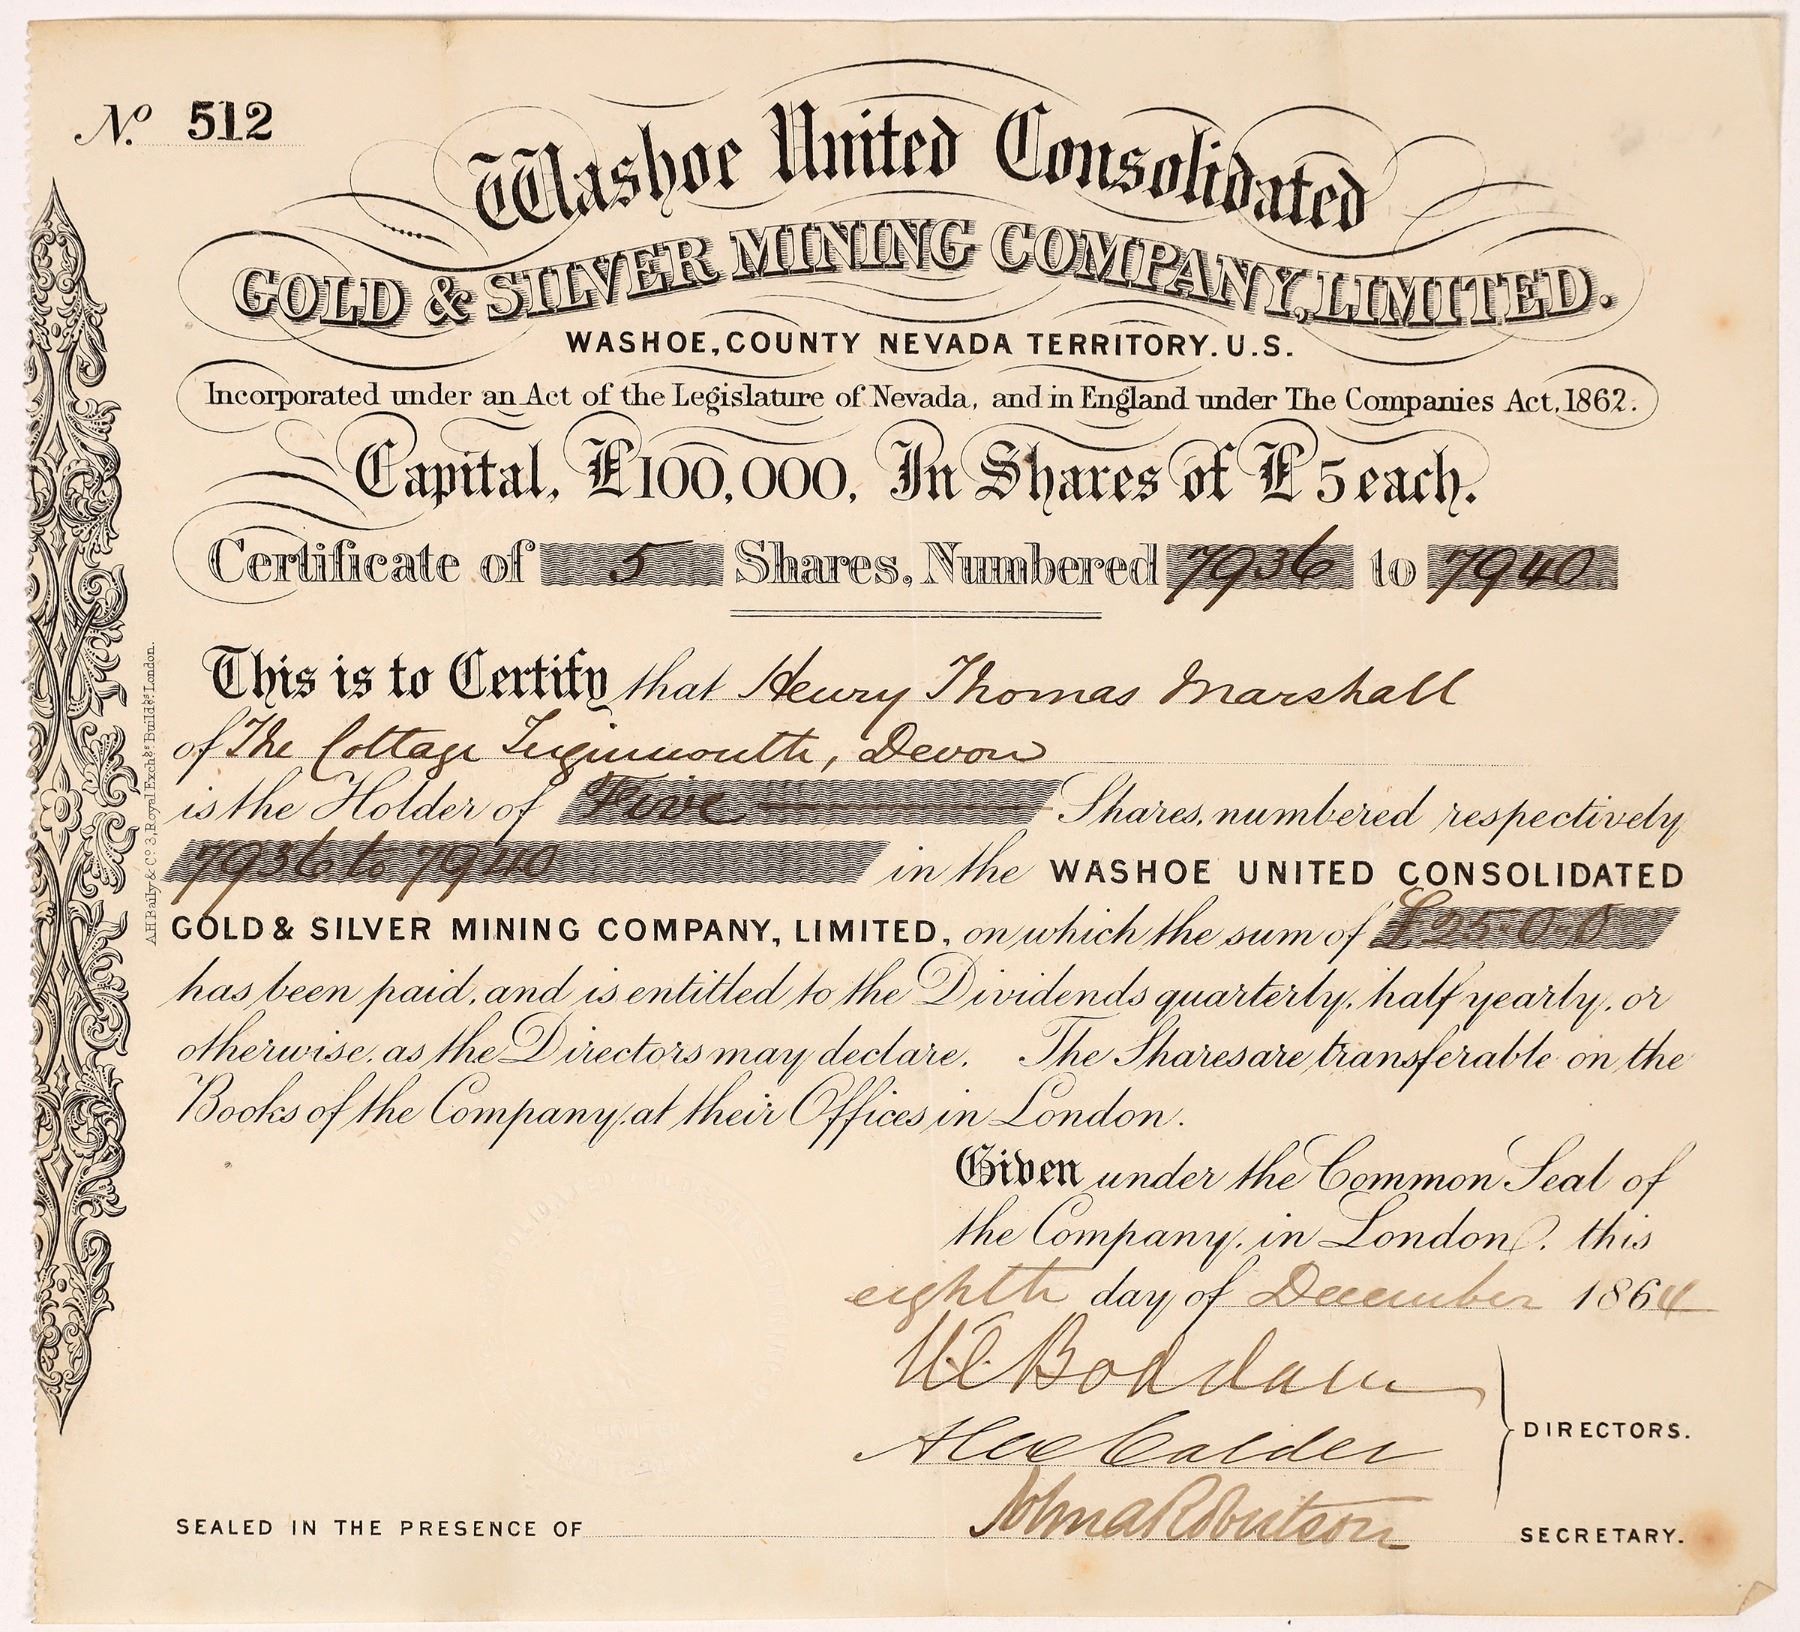 No. 512
Washoe United Consolidated
GOLD & SILVER MINING COMPANY, LIMITED.
WASHOE, COUNTY NEVADA TERRITORY. U.S.
Incorporated under an Act of the Legislature of Nevada, and in England under The Companies Act, 1862.
Capital, £100,000, In Shares of £5 each.
Certificate of 5 Shares, Numbered 7936 to 7940
This is to Certify that Henry Thomas Marshall
of The Cottage Teignmouth, Devon
is the Holder of Five Shares, numbered respectively
7936 to 7940 in the WASHOE UNITED CONSOLIDATED
GOLD & SILVER MINING COMPANY, LIMITED, on which the sum of £25-0-0
has been paid, and is entitled to the Dividends quarterly, half yearly, or
otherwise, as the Directors may declare. The Shares are transferable on the
Books of the Company, at their Offices in London.
Given under the Common Seal of
the Company, in London, this
eighth day of December 1864
Alex Calder
DIRECTORS.
John A Robertson
SEALED IN THE PRESENCE OF
SECRETARY.
A.H. Baily & Co. 3, Royal Exchge. Buildgs. London.